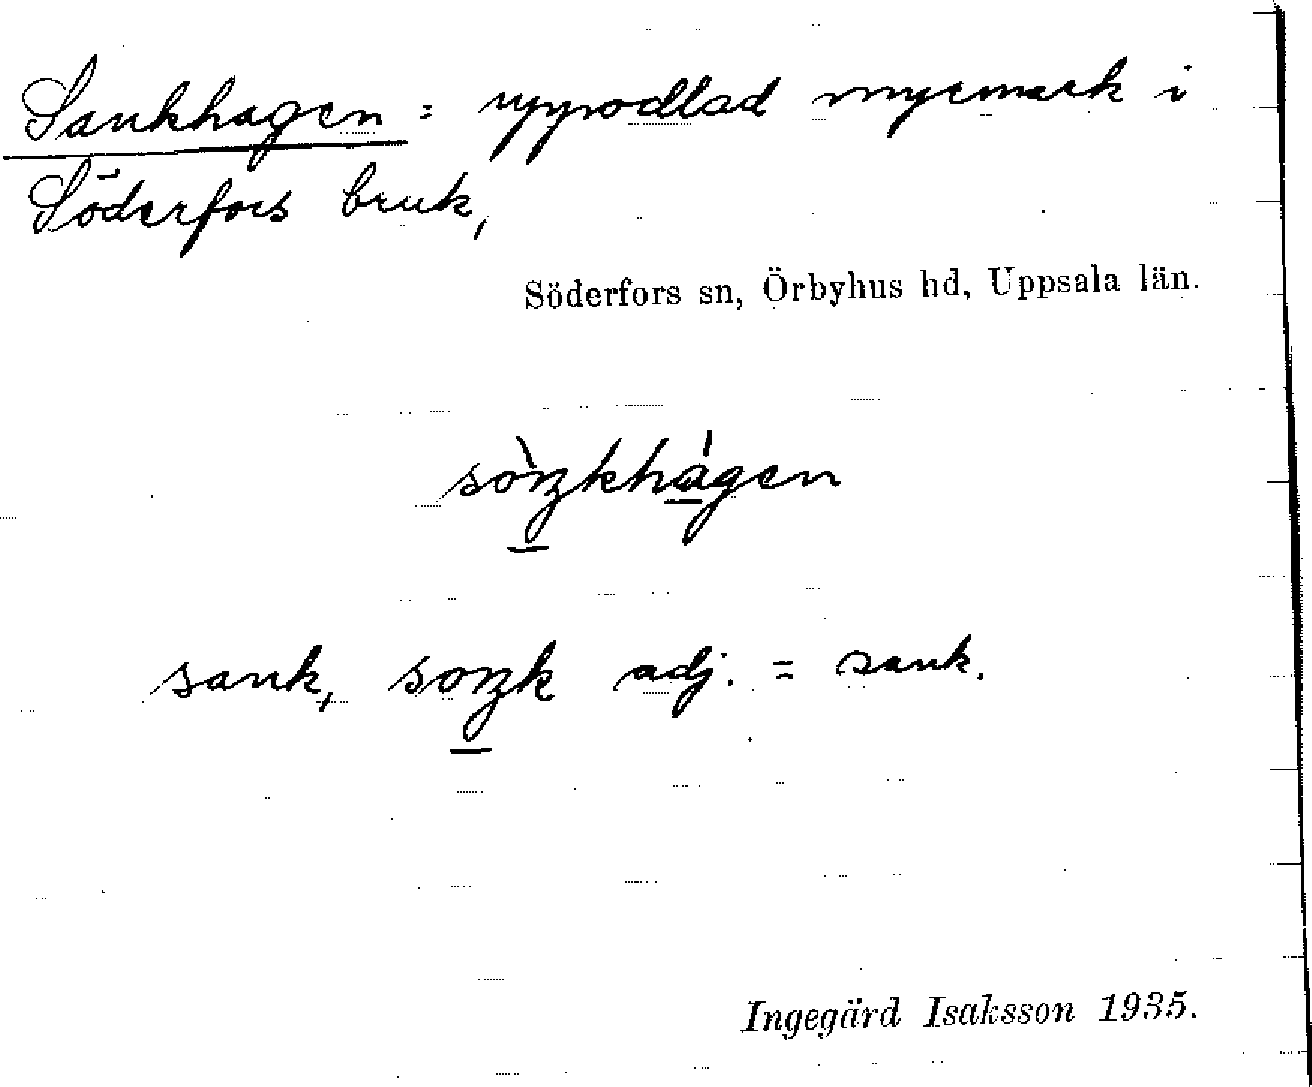 Sankhagen = uppodlad myrmark i
Söderfors bruk,
Söderfors sn, Örbyhus hd, Uppsala län.
sank, adj. = sank.
Ingegärd Isaksson 1935.